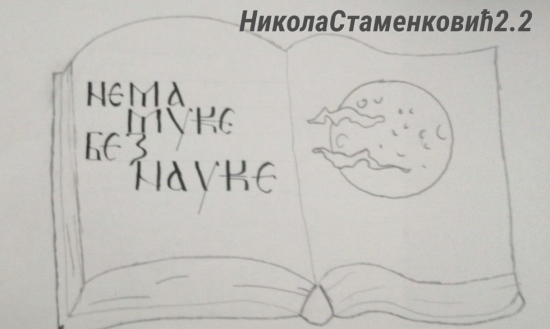 НиколаСтаменковић2.2
НЕМА
МУКЕ
БЕЗ
НАУКЕ